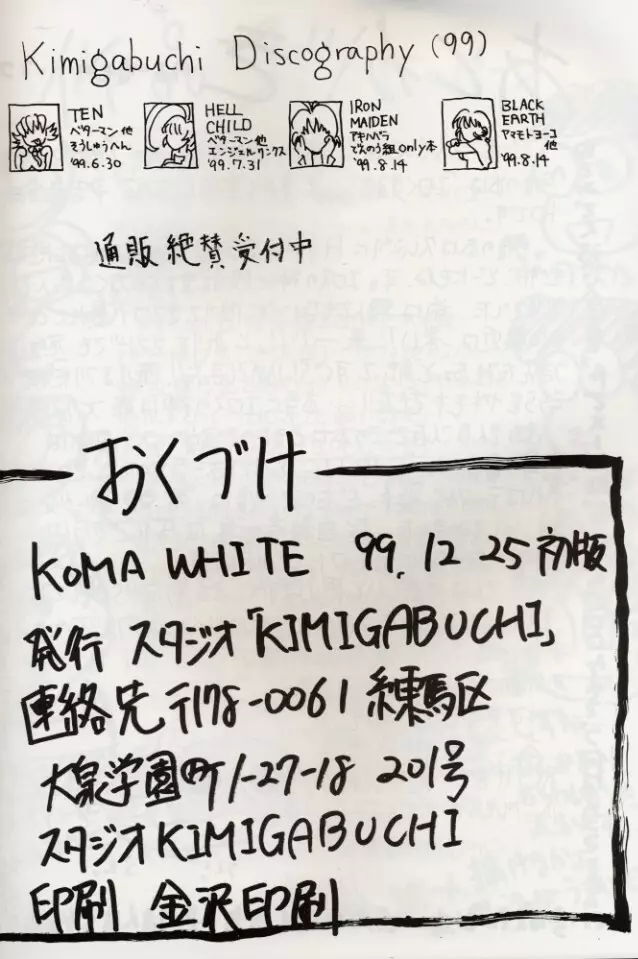 Kimigabuchi Discography (99)
TEN
ベターマン 他
そうしゅうへん
'99.6.30
HELL
CHILD
ベターマン 他
エンジェルリンクス
'99.7.31
IRON
MAIDEN
アキハバラ
でんのう組only本
'99.8.14
BLACK
EARTH
ヤマモトヨーコ
他
'99.8.14
通販 絶賛 受付中
おくづけ
KOMA WHITE 99. 12 25 初版
発行 スタジオ「KIMIGABUCHI」
連絡先 〒178-0061 練馬区
大泉学園町1-27-18 201号
スタジオ KIMIGABUCHI
印刷 金沢印刷